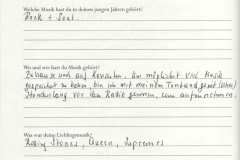 Welche Musik hast du in deinen jungen Jahren gehört?
Rock + Soul
Wo und wie hast du Musik gehört?
Zuhause und auf Konzerten. Um möglichst viel Musik
gespeichert zu haben, bin ich mit meinem Tonband
Stundenlang vor dem Radio gesessen, um aufzunehmen.
Was war deine Lieblingsmusik?
Rolling Stones, Queen, Supremes